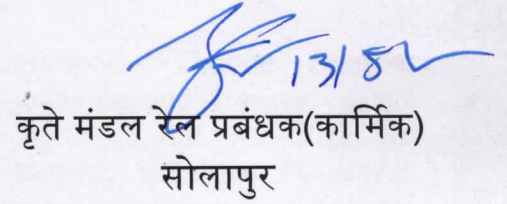 13/8
कृते मंडल रेल प्रबंधक(कार्मिक)
सोलापुर